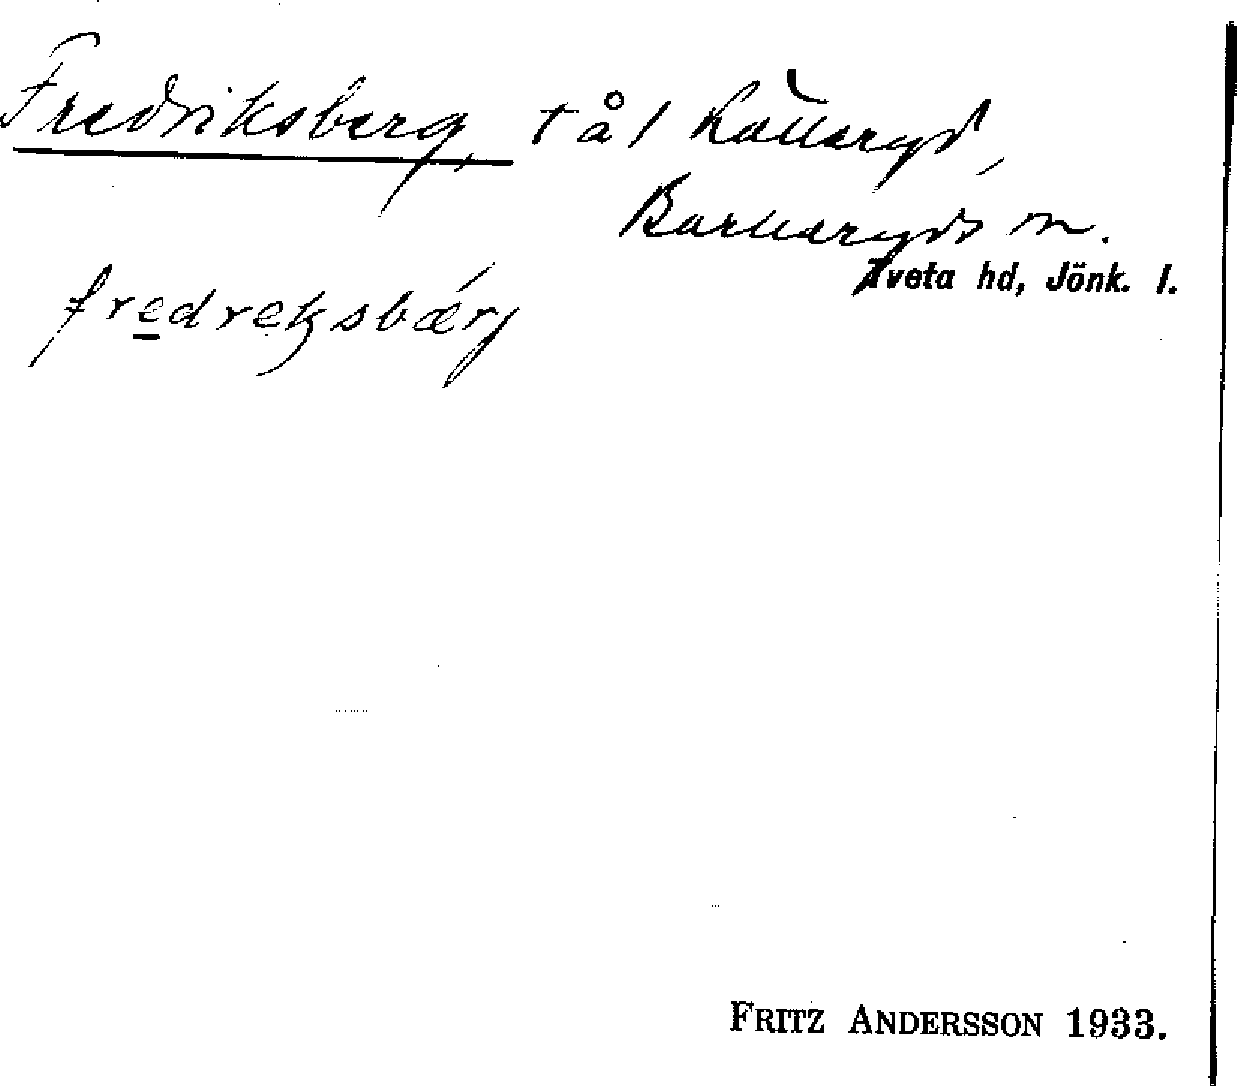 Fredriksberg, t å l Källeryd,
Barkeryds sn.
Tveta hd, Jönk. l.
fredreksbærj
FRITZ ANDERSSON 1933.